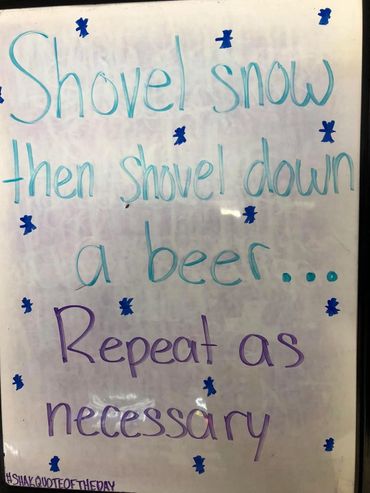 Shovel snow
then shovel down
a beer...
Repeat as
necessary
#SHAKQUOTEOFTHEDAY